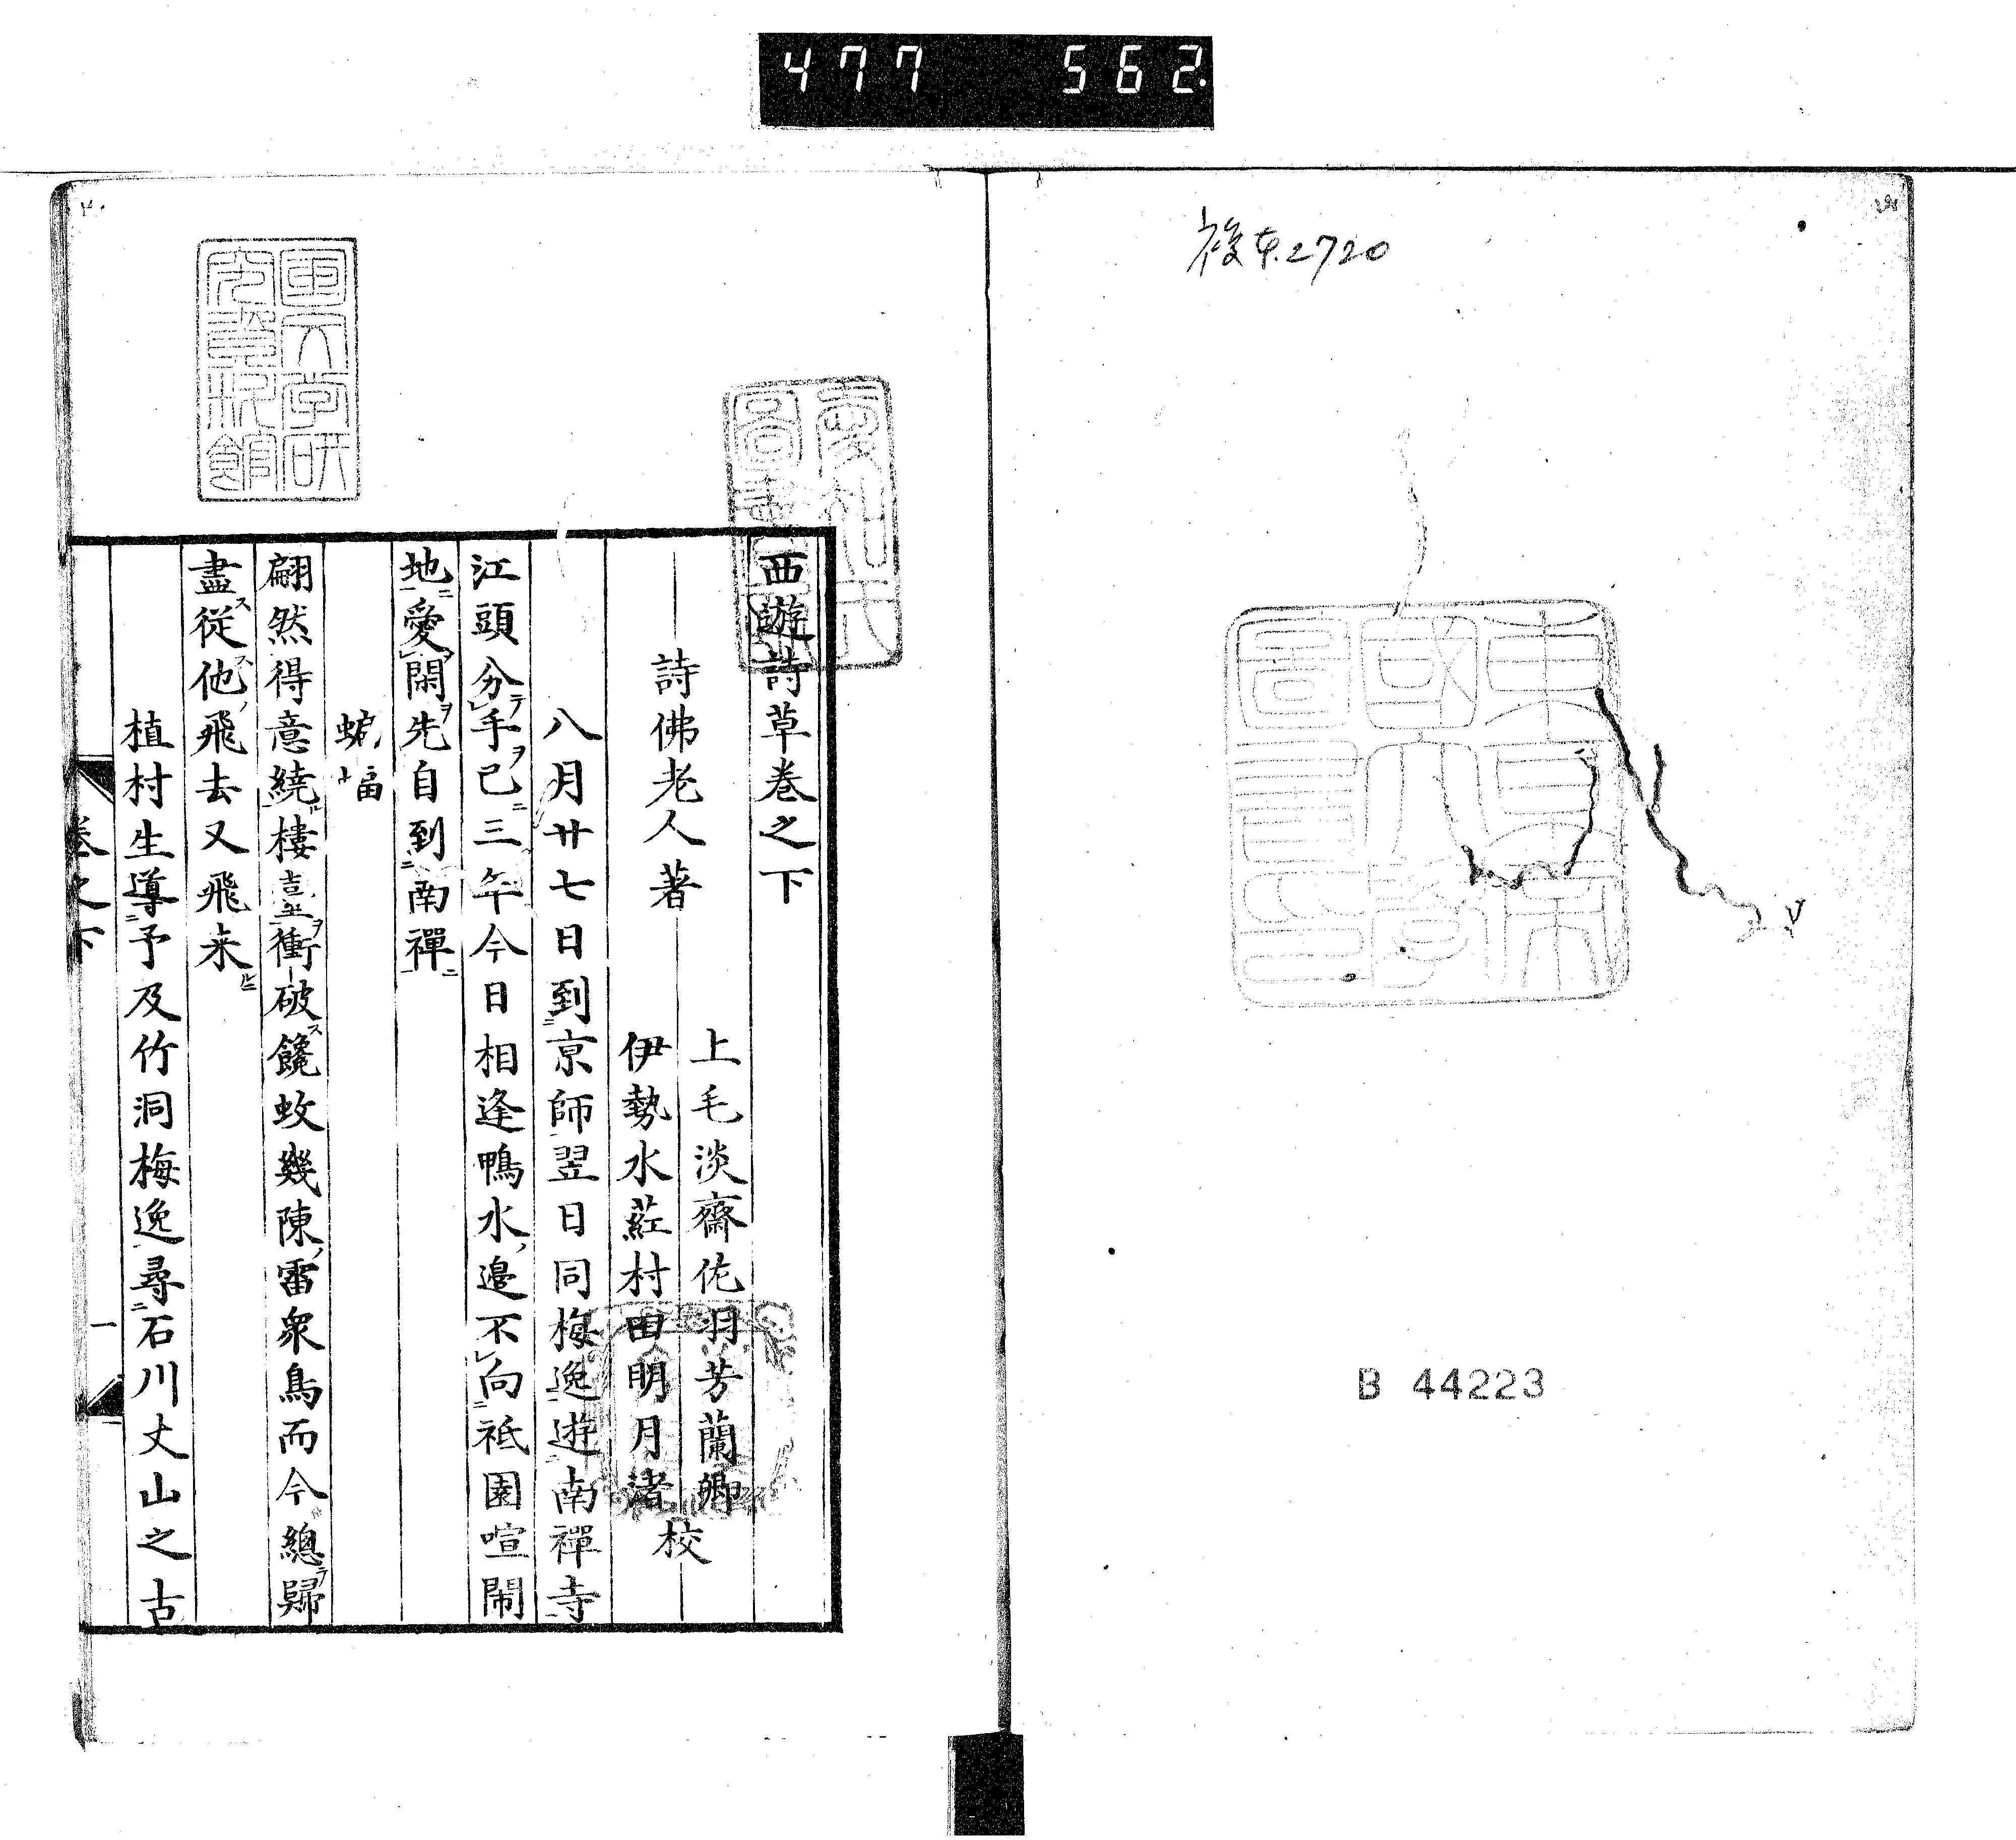 477 562
複東.2720
東京深
國大學
圖書印
B 44223
西遊詩草卷之下
詩佛老人著
上毛淡齋佐羽芳蘭卿
伊勢水莊村田明月渚
校
八月廿七日到京師翌日同梅逸遊南禪寺
江頭分手已三年今日相逢鴨水邊不向祇園喧鬧
地愛閑先自到南禪
蝙蝠
翩然得意繞樓臺衝破饞蚊幾陳雷衆鳥而今總歸
盡從他飛去又飛来
植村生導予及竹洞梅逸尋石川丈山之古
卷之下
一